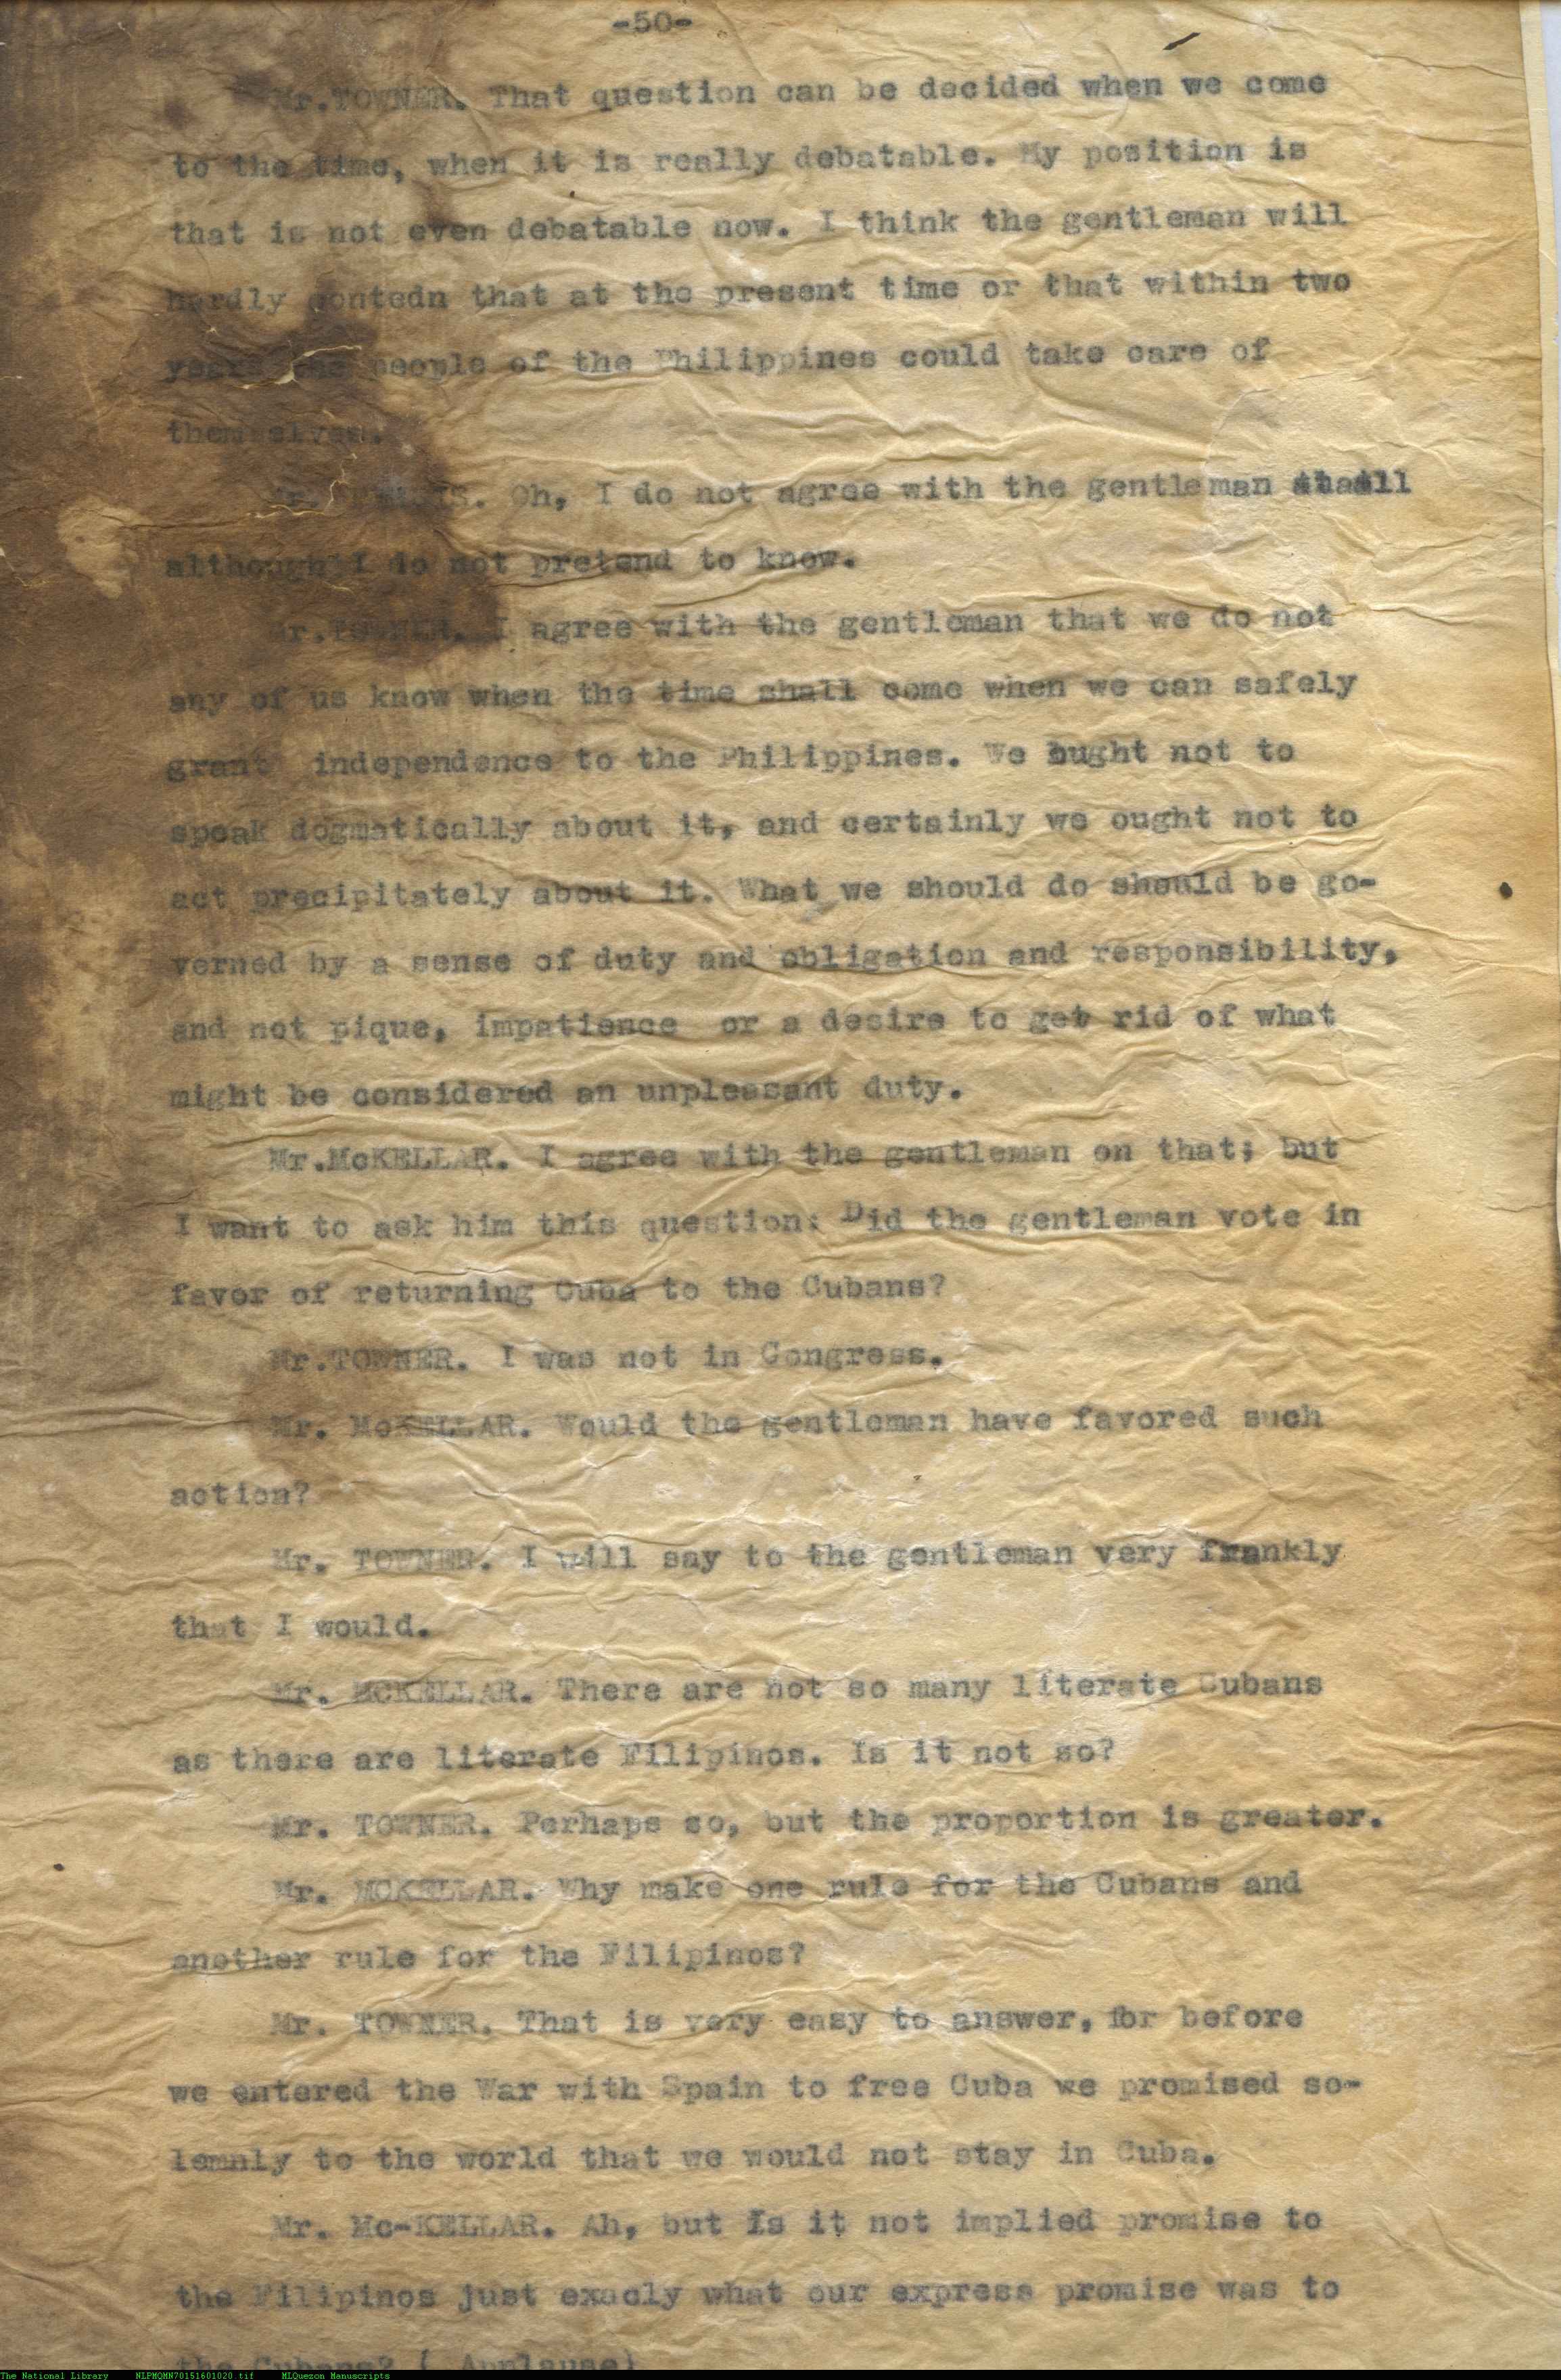 -50-
Mr.TOWNER. That question can be decided when we come
to the time, when it is really debatable. My position is
that is not even debatable now. I think the gentleman will
hardly contedn that at the present time or that within two
years the people of the Philippines could take care of
themselves.
Mr. Oh, I do not agree with the gentleman
although I do not pretend to know.
Mr.TOWNER. I agree with the gentleman that we do not
any of us know when the time shall come when we can safely
grant independence to the Philippines. We ought not to
speak dogmatically about it, and certainly we ought not to
act precipitately about it. What we should do should be go-
verned by a sense of duty and obligation and responsibility,
and not pique, impatience or a desire to get rid of what
might be considered an unpleasant duty.
Mr.McKELLAR. I agree with the gentleman on that; but
I want to ask him this question: Did the gentleman vote in
favor of returning Cuba to the Cubans?
Mr.TOWNER. I was not in Congress.
Mr. McKELLAR. Would the gentleman have favored such
action?
Mr. TOWNER. I will say to the gentleman very frankly
that I would.
Mr. MCKELLAR. There are not so many literate Cubans
as there are literate Filipinos. Is it not so?
Mr. TOWNER. Perhaps so, but the proportion is greater.
Mr. MCKELLAR. Why make one rule for the Cubans and
another rule for the Filipinos?
Mr. TOWNER. That is very easy to answer, for before
we entered the War with Spain to free Cuba we promised so-
lemnly to the world that we would not stay in Cuba.
Mr. Mc-KELLAR. Ah, but Is it not implied promise to
the Filipinos just exacly what our express promise was to
the Cubans? ( Applause)
The National Library NLPMQMN70151601020.tif MLQuezon Manuscripts